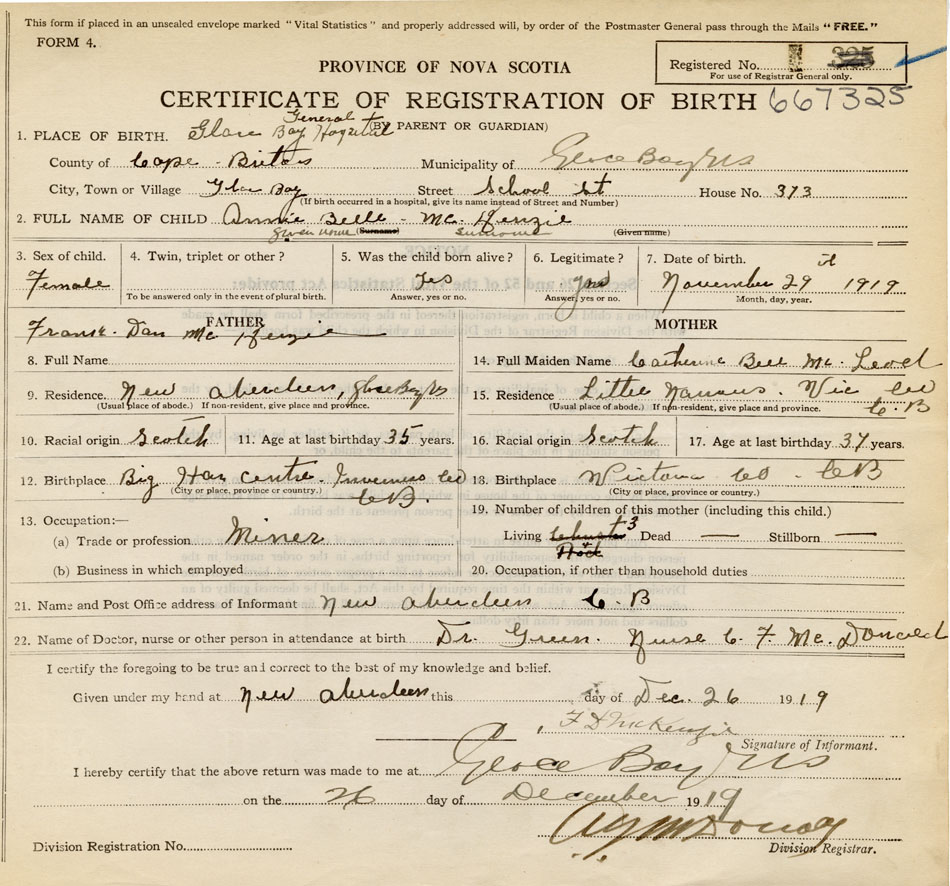 This form if placed in an unsealed envelope marked "Vital Statistics" and properly addressed will, by order of the Postmaster General pass through the Mails "FREE."
FORM 4.
Registered No. 325
For use of Registrar General only.
PROVINCE OF NOVA SCOTIA
CERTIFICATE OF REGISTRATION OF BIRTH 667325
(BY PARENT OR GUARDIAN)
1. PLACE OF BIRTH. Glace Bay General Hospital
County of Cape - Briton Municipality of Glace Bay NS
City, Town or Village Glace Bay Street School St House No. 373
(If birth occurred in a hospital, give its name instead of Street and Number)
2. FULL NAME OF CHILD Annie Belle - Mc. Kenzie
given name (Surname) surname (Given name)
3. Sex of child. 4. Twin, triplet or other? 5. Was the child born alive? 6. Legitimate? 7. Date of birth.
Female Yes yes November 29 1919
To be answered only in the event of plural birth. Answer, yes or no. Answer, yes or no. Month, day, year.
FATHER MOTHER
Frank. Dan Mc Kenzie
8. Full Name 14. Full Maiden Name Catherine Bell Mc. Leod
9. Residence. New aberdeen, Glace Bay NS 15. Residence Little Narrows. Vic Co C.B
(Usual place of abode.) If non-resident, give place and province. (Usual place of abode.) If non-resident, give place and province.
10. Racial origin Scotch 11. Age at last birthday 35 years. 16. Racial origin Scotch 17. Age at last birthday 37 years.
12. Birthplace Big centre. Co C.B. 18. Birthplace Victoria Co - C B
(City or place, province or country.) (City or place, province or country.)
13. Occupation:— 19. Number of children of this mother (including this child.)
(a) Trade or profession Miner Living 3 Dead — Stillborn —
(b) Business in which employed 20. Occupation, if other than household duties
21. Name and Post Office address of Informant New aberdeen C. B
22. Name of Doctor, nurse or other person in attendance at birth Dr. Green. Nurse C. F. Mc. Donald
I certify the foregoing to be true and correct to the best of my knowledge and belief.
Given under my hand at New aberdeen this day of Dec. 26 1919
F D McKenzie
Signature of Informant.
I hereby certify that the above return was made to me at Glace Bay NS
on the 26 day of December 1919
Division Registration No. Division Registrar.